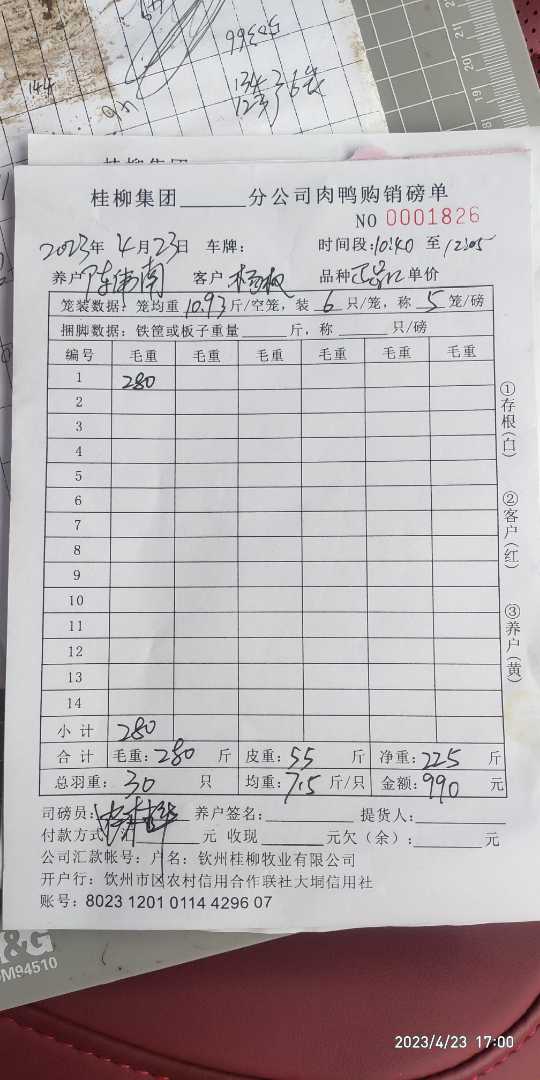 144
99366
134
123
36
桂柳集团
桂柳集团______分公司肉鸭购销磅单
NO 0001826
2023年 4月23日 车牌: 时间段:10:40 至 12:05
养户 陈伟南 客户 杨枚 品种 正品口 单价
笼装数据: 笼均重 10.93 斤/空笼, 装 6 只/笼, 称 5 笼/磅
捆脚数据: 铁筐或板子重量______斤, 称______只/磅
编号 毛重 毛重 毛重 毛重 毛重 毛重
1 280
2
3
4
5
6
7
8
9
10
11
12
13
14
小计 280
合计 毛重: 280 斤 皮重: 55 斤 净重: 225 斤
总羽重: 30 只 均重: 7.5 斤/只 金额: 990 元
司磅员: 养户签名:________ 提货人:________
付款方式: ________元 收现________元欠(余):________元
公司汇款帐号: 户名: 钦州桂柳牧业有限公司
开户行: 钦州市区农村信用合作联社大垌信用社
账号: 8023 1201 0114 4296 07
①存根(白)
②客户(红)
③养户(黄)
21
20
19
18
&G
DM94510
2023/4/23 17:00